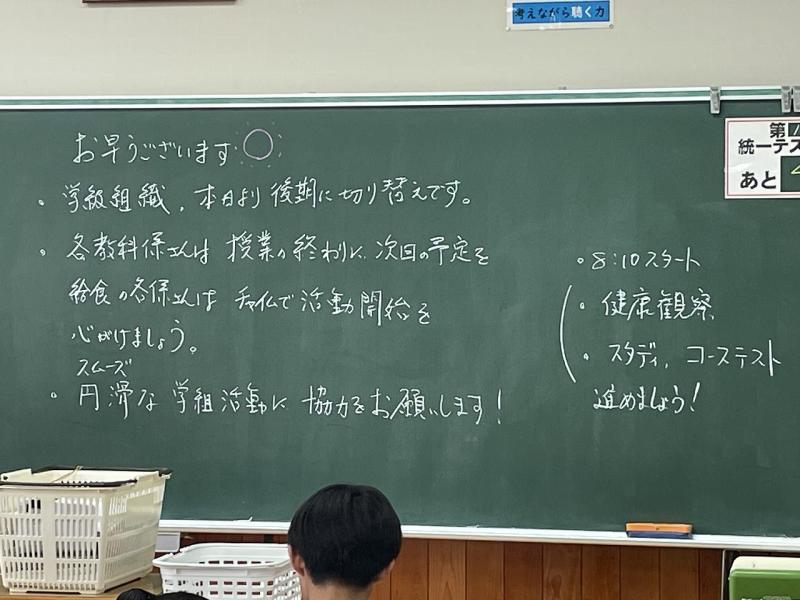 考えながら聴く力
お早うございます
・学級組織、本日より後期に切り替えです。
・各教科係さんは授業の終わりに、次回の予定を
給食の各係さんはチャイムで活動開始を
心がけましょう。
スムーズ
・円滑な学組活動に協力をお願いします!
・8:10スタート
・健康観察
・スタディ、コーステスト
進めましょう!
第
統一テス
あと